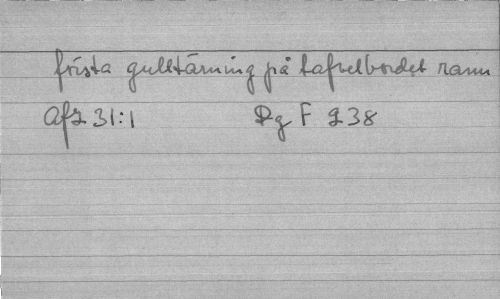 första gulltärning på tafvelbordet rann
Afz 31:1 Dg F 238